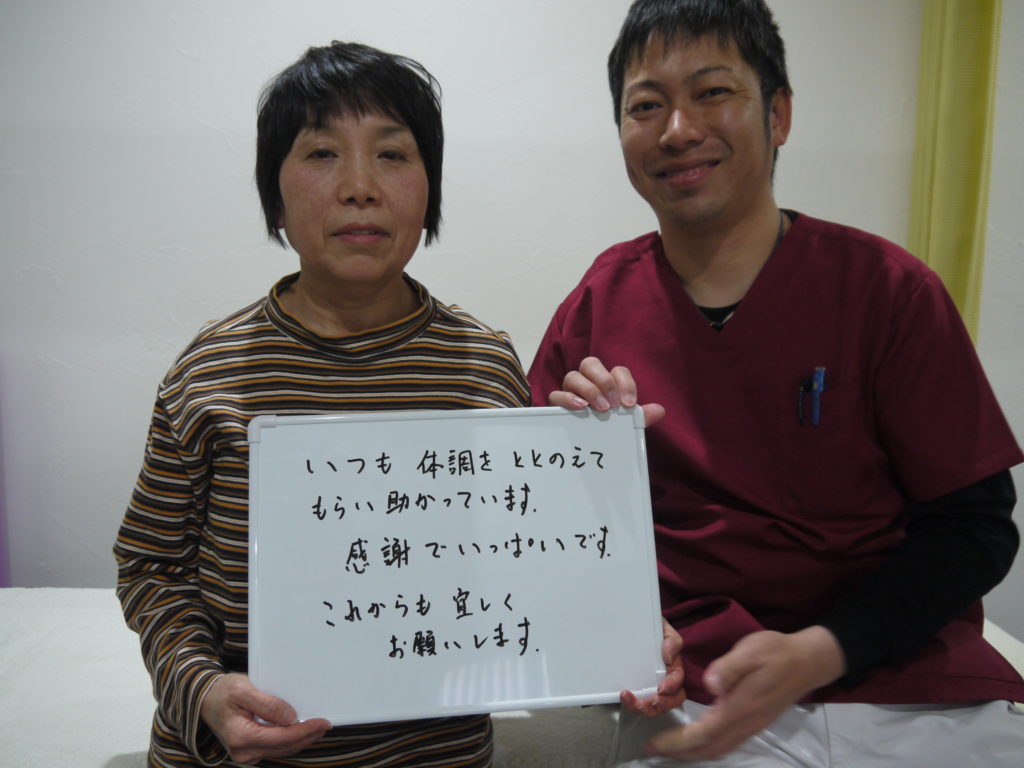 いつも 体調を ととのえて
もらい助かっています.
感謝でいっぱいです.
これからも 宜しく
お願いします.